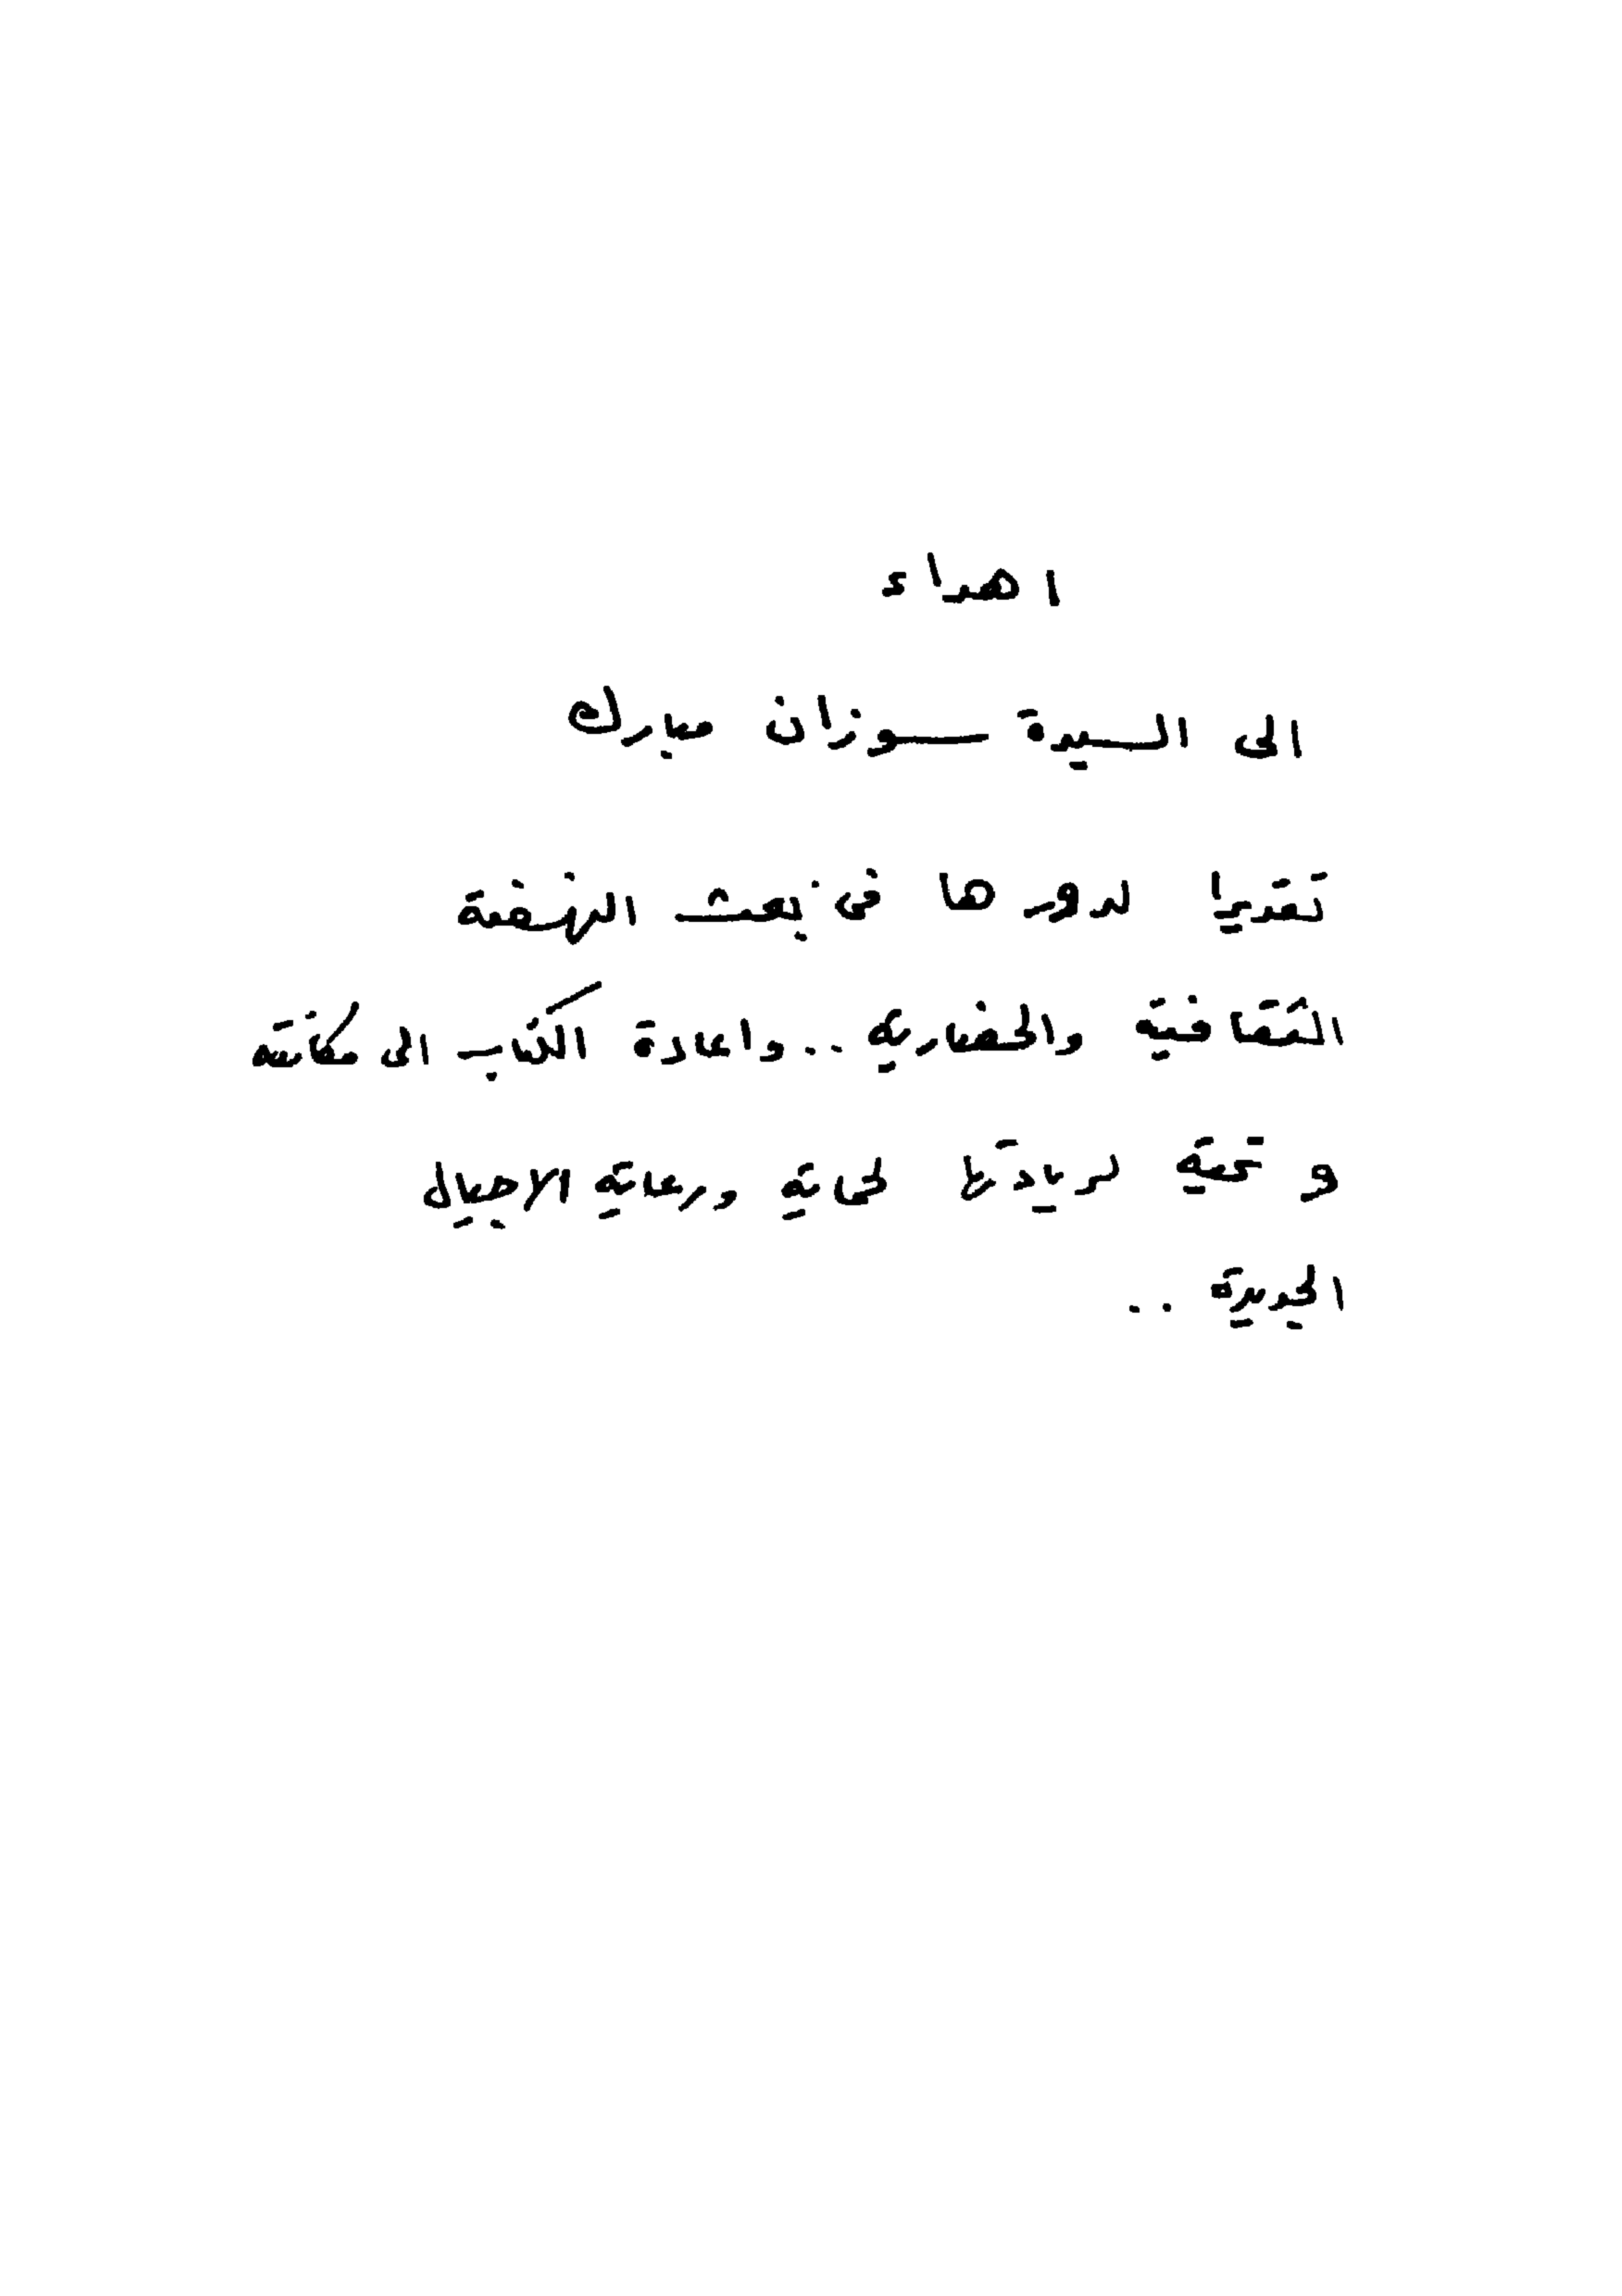 اهداء
الى السيدة سوزان مبارك
تقديرا لدورها فى بعث النهضة
الثقافية والحضارية .. واعادة الكتاب الى مكانته
و تحية لريادتها لحماية ورعاية الاجيال
الجديدة ..